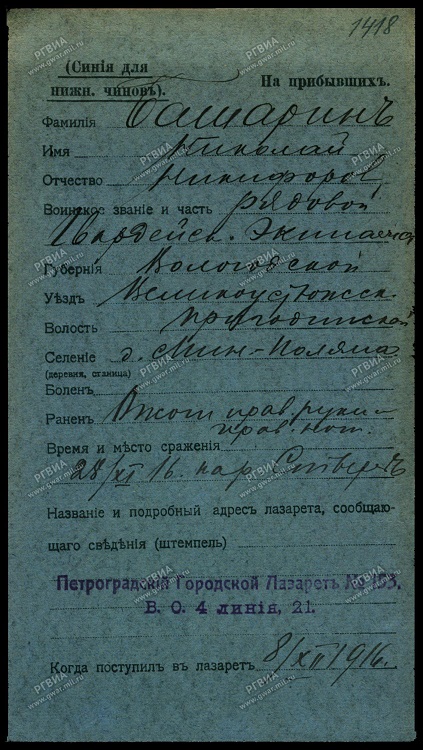 1418
(Синія для
нижн. чиновъ).
На прибывшихъ.
Фамилія Башаринъ
Имя Николай
Отчество Никифоров
Воинское званіе и часть рядовой
Гвардейск. Экипажа
Губернія Вологодской
Уѣздъ Великоустюжск
Волость
Селеніе д.
(деревня, станица)
Боленъ
Раненъ Ожог прав. руки и
прав. ног.
Время и мѣсто сраженія
28/XI 16. на р.
Названіе и подробный адресъ лазарета, сообщаю-
щаго свѣдѣнія (штемпель)
Петроградскій Городской Лазаретъ №
В. О. 4 линія, 21.
Когда поступил въ лазаретъ 8/XII 1916.
РГВИА
www.gwar.mil.ru